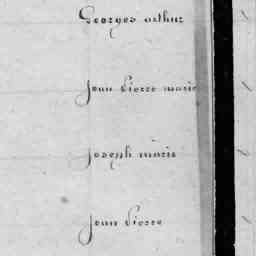 Georges arthur
Jean Pierre marie
Joseph marie
Jean Pierre